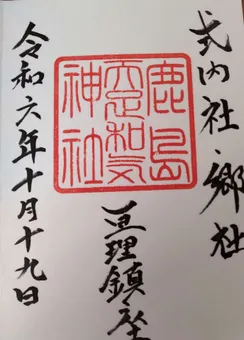 式内社・郷社
鹿島
天足和気
神社
亘理鎮座
令和六年十月十九日